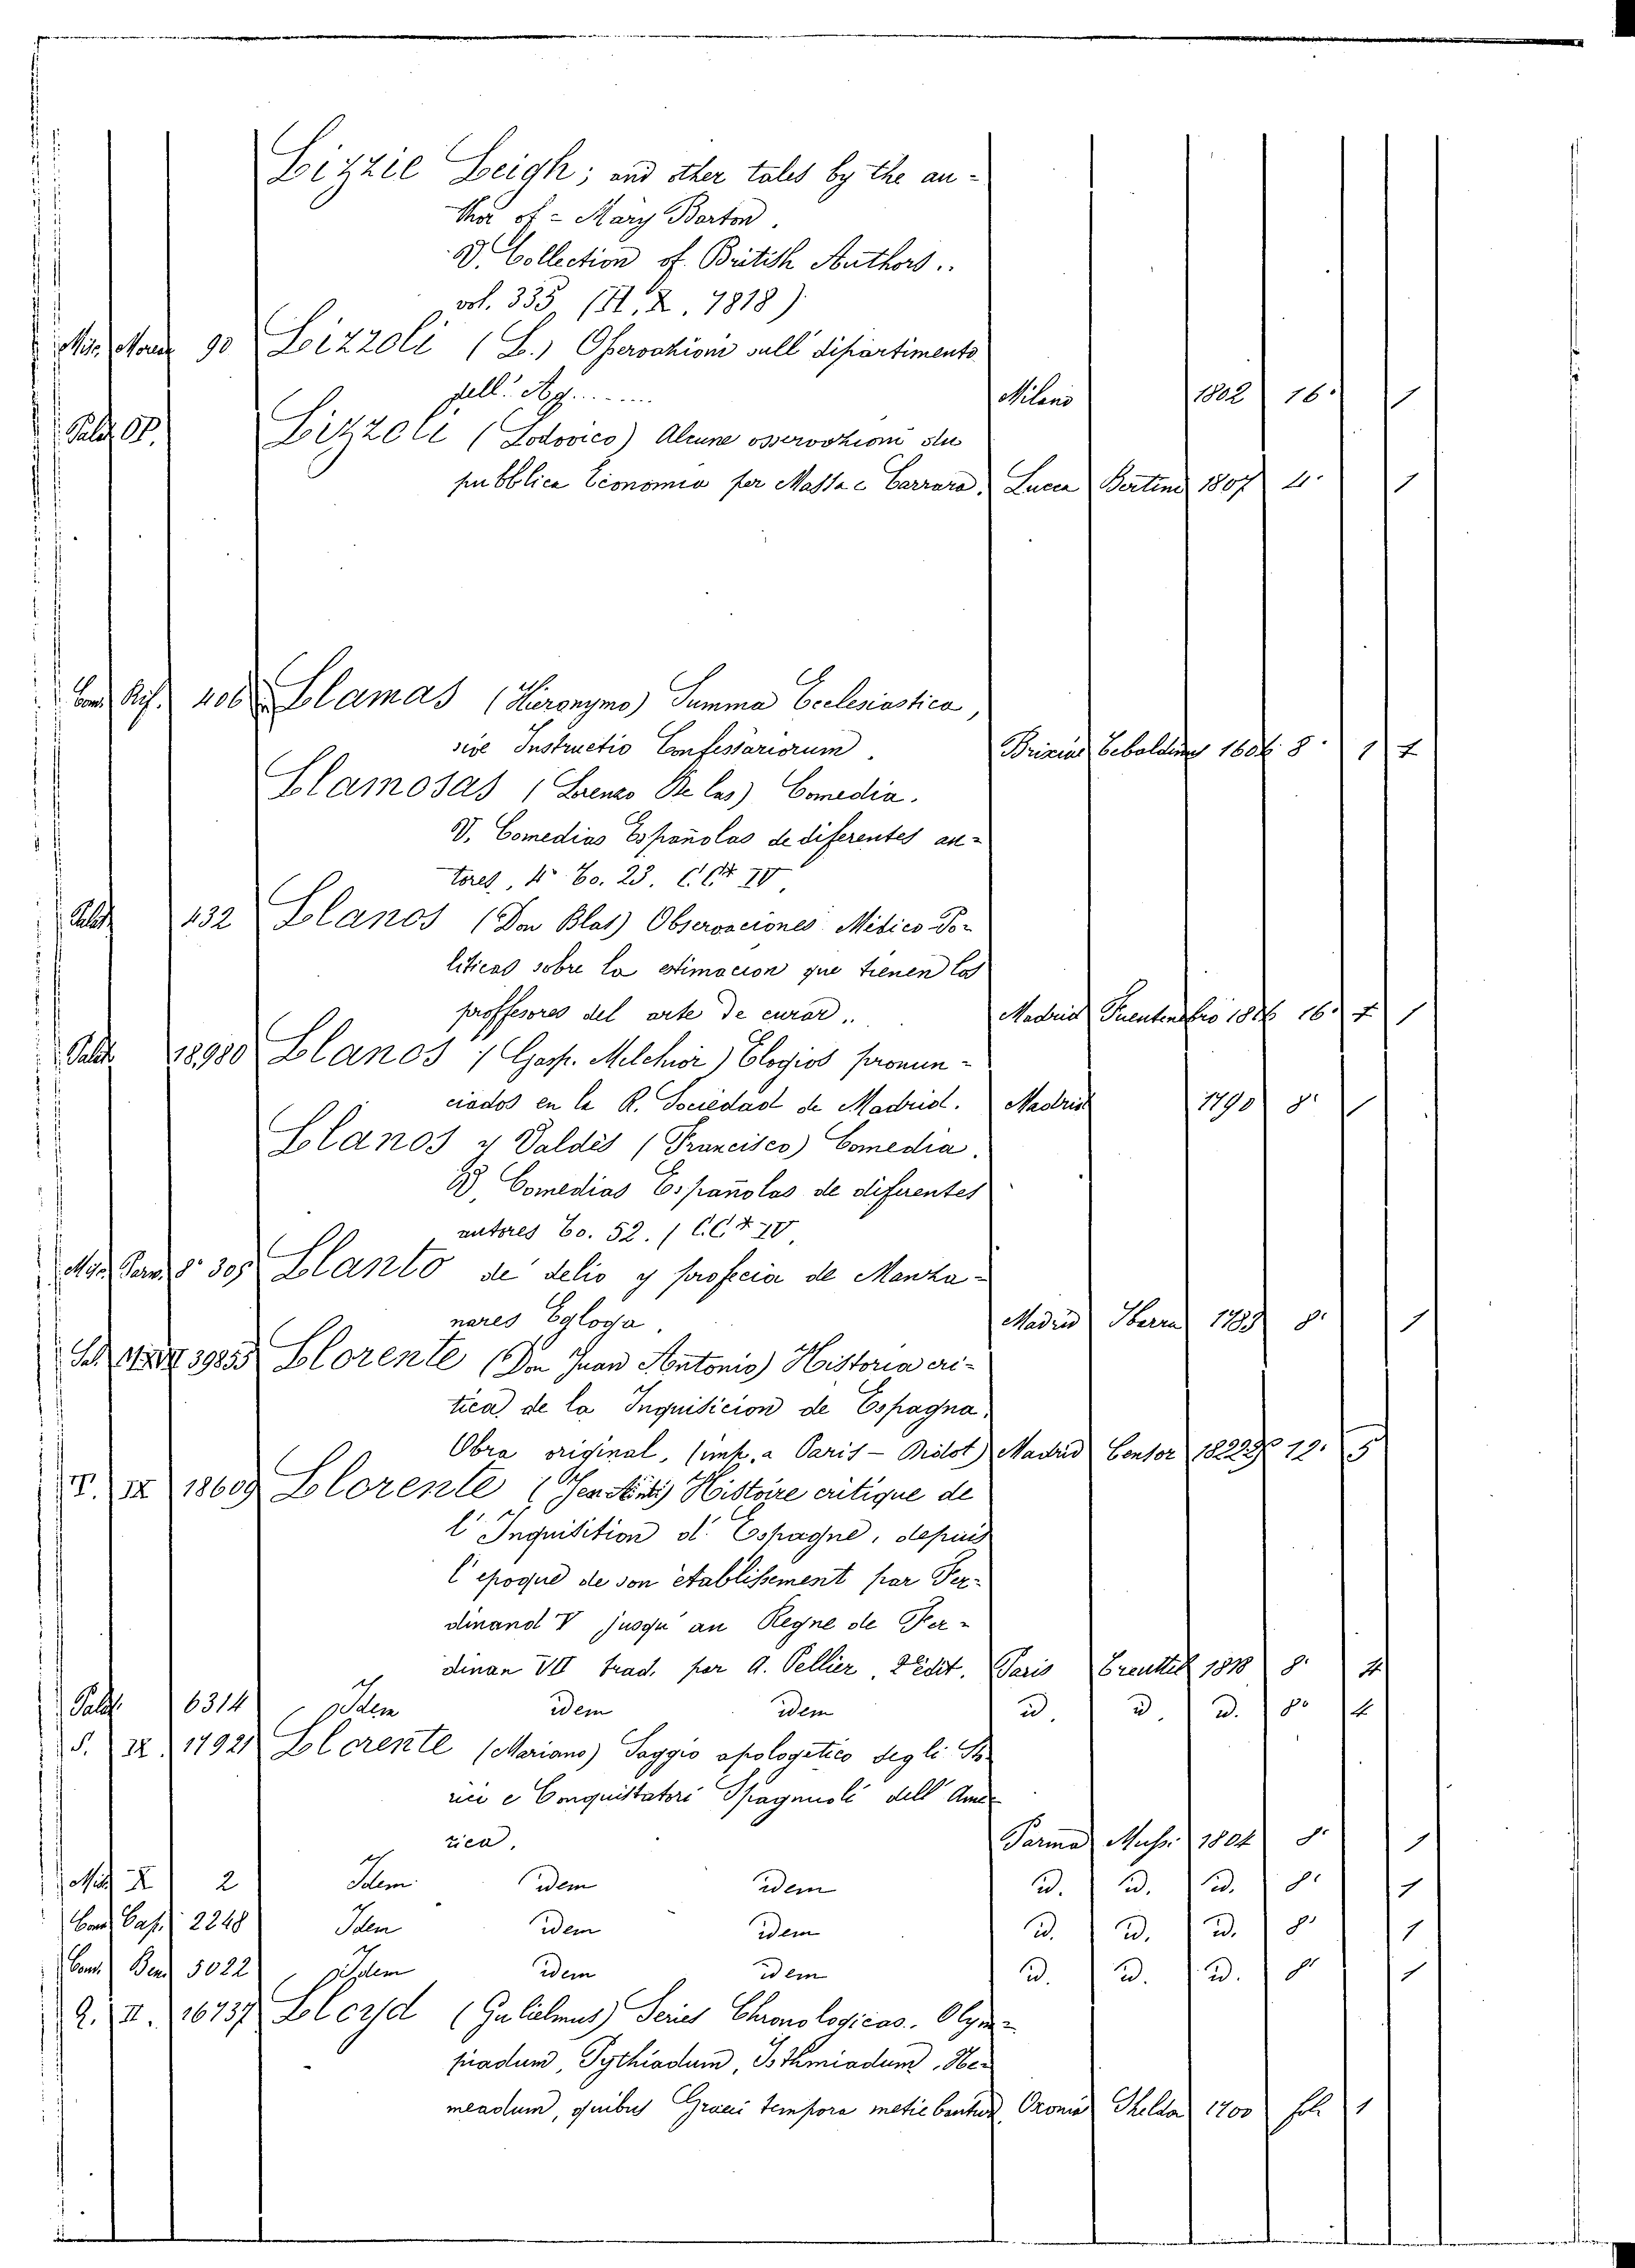 Lizzie Leigh; and other tales by the au-
thor of = Mary Barton.
V. Collection of British Authors..
vol. 335 (H. X. 7818)
90 Lizzoli (L.) Osservazioni sull dipartimento
dell' Ag......... Milano 1802 16. 1
Palat. Lizzoli (Lodovico) Alcune osservazioni su
pubblica Economia per Massa e Carrara. Lucca Bertini 1807 4. 1
Conv. Rif. 406 Llamas (Hieronymo) Summa Ecclesiastica,
sive Instructio Confessariorum. Brixiae 8. 1
Llamosas (Lorenzo De las) Comedia.
V. Comedias Españolas de diferentes au-
tores, 4. Co. 23.
Palat. 432 Llanos (Don Blas) Observaciones Medico Po-
liticas sobre la estimacion que tienen los
proffesores del arte de curar.. Madrid 16. 1
Palat. 18980 Llanos (Gasp. Melchior) Elogios pronun-
ciados en la R. Sociedad de Madrid. Madrid 1790 8. 1
Llanos y Valdés (Francisco) Comedia.
V. Comedias Españolas de diferentes
autores Co. 52.
8. 305 Llanto de delio y profecia de Manza-
nares Egloga. Madrid Ibarra 8. 1
39855 Llorente (Don Juan Antonio) Historia cri-
tica de la Inquisicion de Espagna.
Obra original, (imp. a Paris - Didot) Madrid Censor 1822 12. 5
T. IX 18609 Llorente Histoire critique de
l' Inquisition d' Espagne, depuis
l' epoque de son établissement par Fer-
dinand V jusqu' au Regne de Fer-
dinan VII trad. par A. Pellier, 2édit. Paris Treuttel 1818 8. 4
Palat. 6314 Idem idem idem id. id. id. 8. 4
S. IX. 11921 Llorente (Mariano) Saggio apologetico degli Sto
rici e Conquistatori Spagnuoli dell' Ame-
rica. Parma Mussi 1804 8. 1
X 2 Idem idem idem id. id. id. 8. 1
Conv. Cap. 2248 Iden idem idem id. id. id. 8. 1
Conv. Bend. 5022 Idem idem idem id. id. id. 8. 1
Q. II. 16737 Lloyd (Gulielmus) Series Chronologicas. Olym-
piadum, Pythiadum, Isthmiadum, Ne-
meadum, quibus Graeci tempora metiebantur. Oxoniae 1700 fol. 1